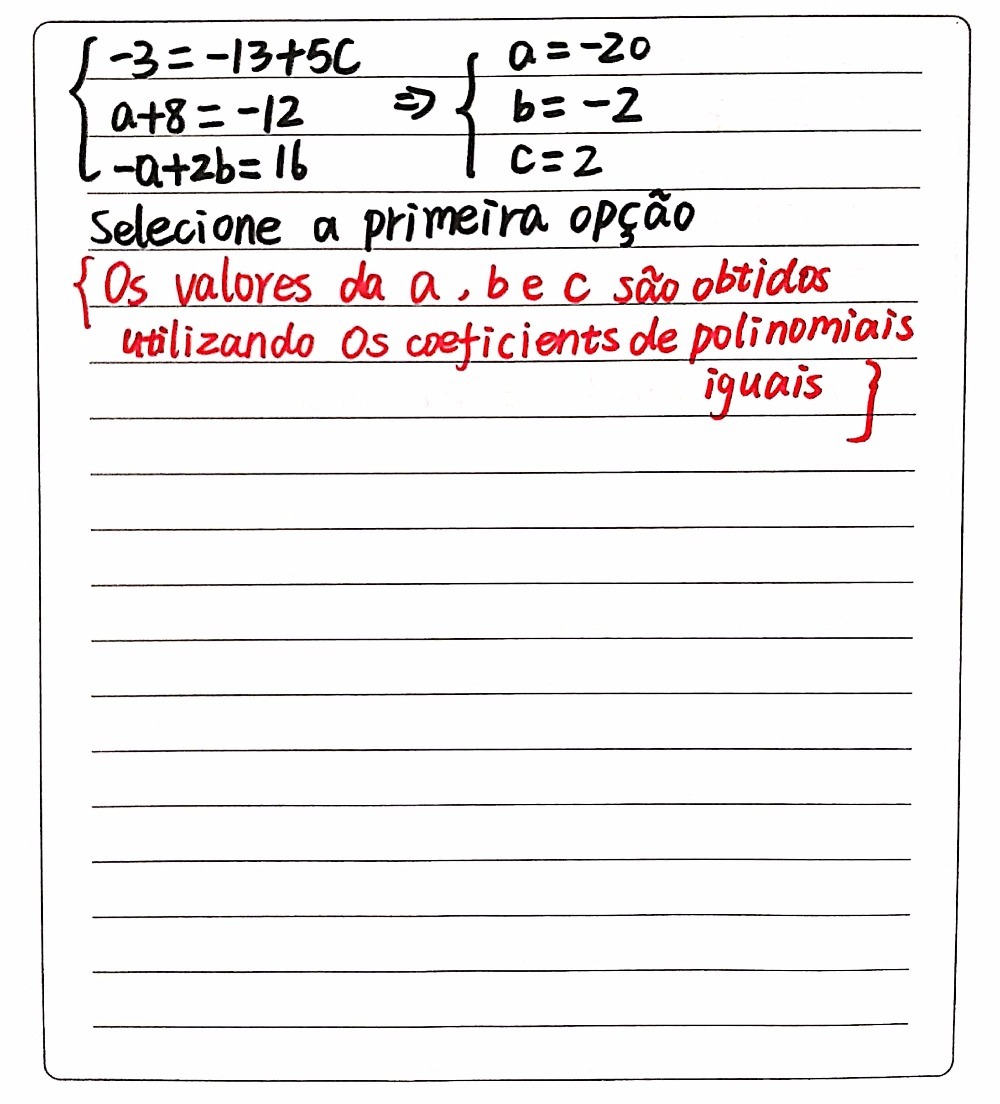 { -3 = -13+5C ⇒ { a = -20
a+8 = -12 b = -2
-a+2b= 16 c = 2
Selecione a primeira opção
{Os valores da a, b e c são obtidos
utilizando Os coeficients de polinomiais
iguais }